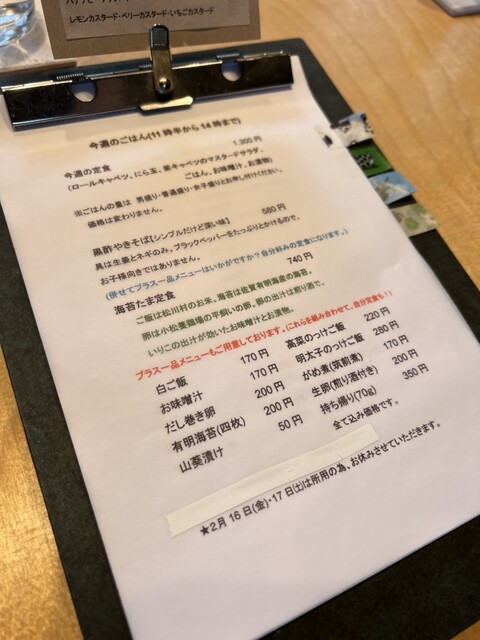 レモンカスタード・ベリーカスタード・いちごカスタード
今週のごはん(11時半から14時まで)
今週の定食 1,300円
(ロールキャベツ、にら玉、紫キャベツのマスタードサラダ、
ごはん、お味噌汁、お漬物)
※ごはんの量は 男盛り・普通盛り・女子盛りとお申し付けください。
価格は変わりません。
黒酢やきそば【シンプルだけど深い味】 580円
具は生姜とネギのみ。ブラックペッパーをたっぷりとかけるので、
お子様向きではありません。
(併せてプラス一品メニューはいかがですか?自分好みの定食になります。)
海苔たま定食 740円
ご飯は松川村のお米。海苔は佐賀有明海産の海苔。
卵は小松養鶏場の平飼いの卵。卵の出汁は煎り酒で。
いりこの出汁が効いたお味噌汁とお漬物。
プラス一品メニューもご用意しております。(これらを組み合わせて、自分定食も!)
白ご飯 170円 高菜のっけご飯 220円
お味噌汁 170円 明太子のっけご飯 280円
だし巻き卵 200円 がめ煮(筑前煮) 170円
有明海苔(四枚) 200円 生卵(煎り酒付き) 200円
山葵漬け 50円 持ち帰り(70g) 350円
全て込み価格です。
★2月16日(金)・17日(土)は所用の為、お休みさせていただきます。